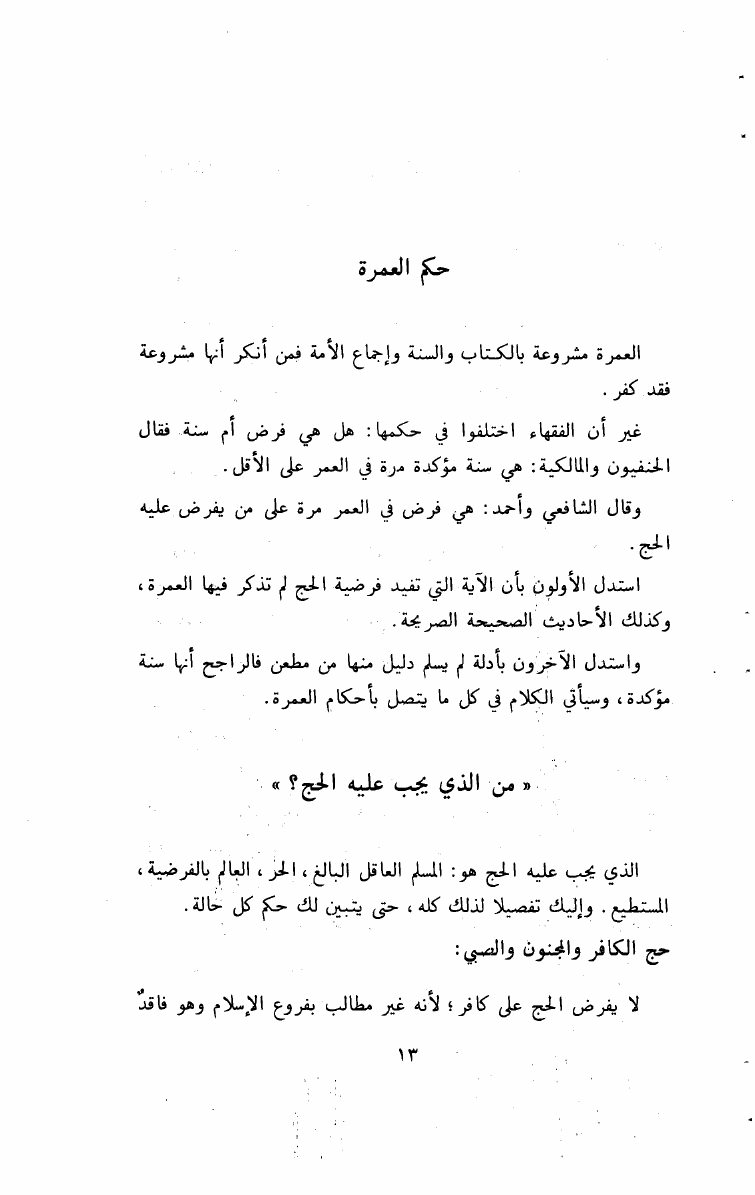 حكم العمرة
العمرة مشروعة بالكتاب والسنة وإجماع الأمة فمن أنكر أنها مشروعة
فقد كفر .
غير أن الفقهاء اختلفوا في حكمها: هل هي فرض أم سنة فقال
الحنفيون والمالكية: هي سنة مؤكدة مرة في العمر على الأقل.
وقال الشافعي وأحمد: هي فرض في العمر مرة على من يفرض عليه
الحج.
استدل الأولون بأن الآية التي تفيد فرضية الحج لم تذكر فيها العمرة،
وكذلك الأحاديث الصحيحة الصريحة.
واستدل الآخرون بأدلة لم يسلم دليل منها من مطعن فالراجح أنها سنة
مؤكدة، وسيأتي الكلام في كل ما يتصل بأحكام العمرة.
« من الذي يجب عليه الحج؟ »
الذي يجب عليه الحج هو: المسلم العاقل البالغ، الحر، العالم بالفرضية،
المستطيع. وإليك تفصيلا لذلك كله، حتى يتبين لك حكم كل حالة.
حج الكافر والمجنون والصبي:
لا يفرض الحج على كافر؛ لأنه غير مطالب بفروع الإسلام وهو فاقدٌ
١٣